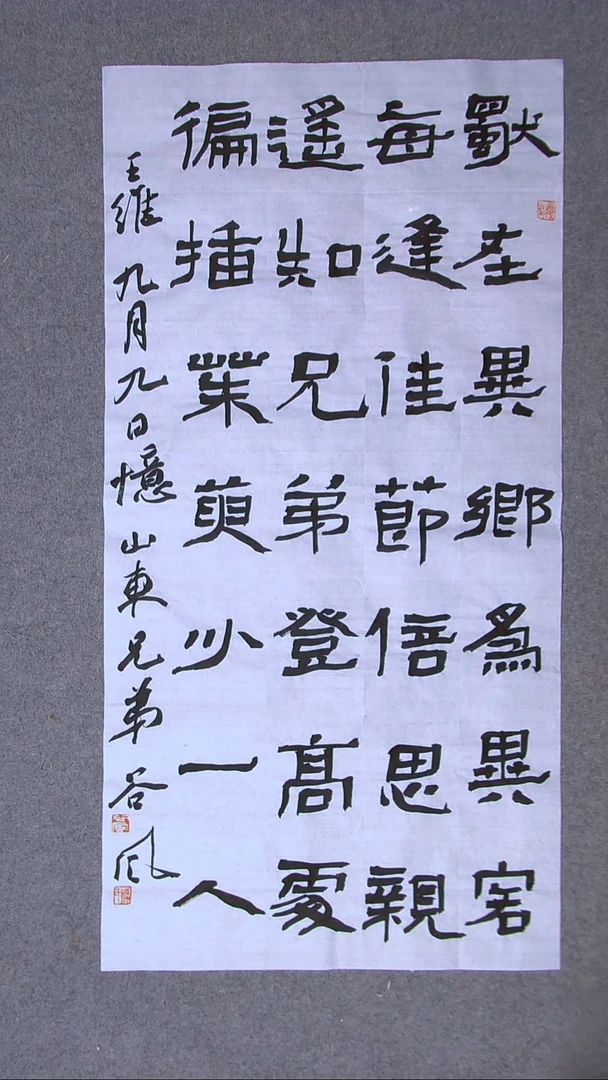 獨在異鄉為異客
每逢佳節倍思親
遥知兄弟登高處
徧插茱萸少一人
王維九月九日憶山東兄弟 谷風